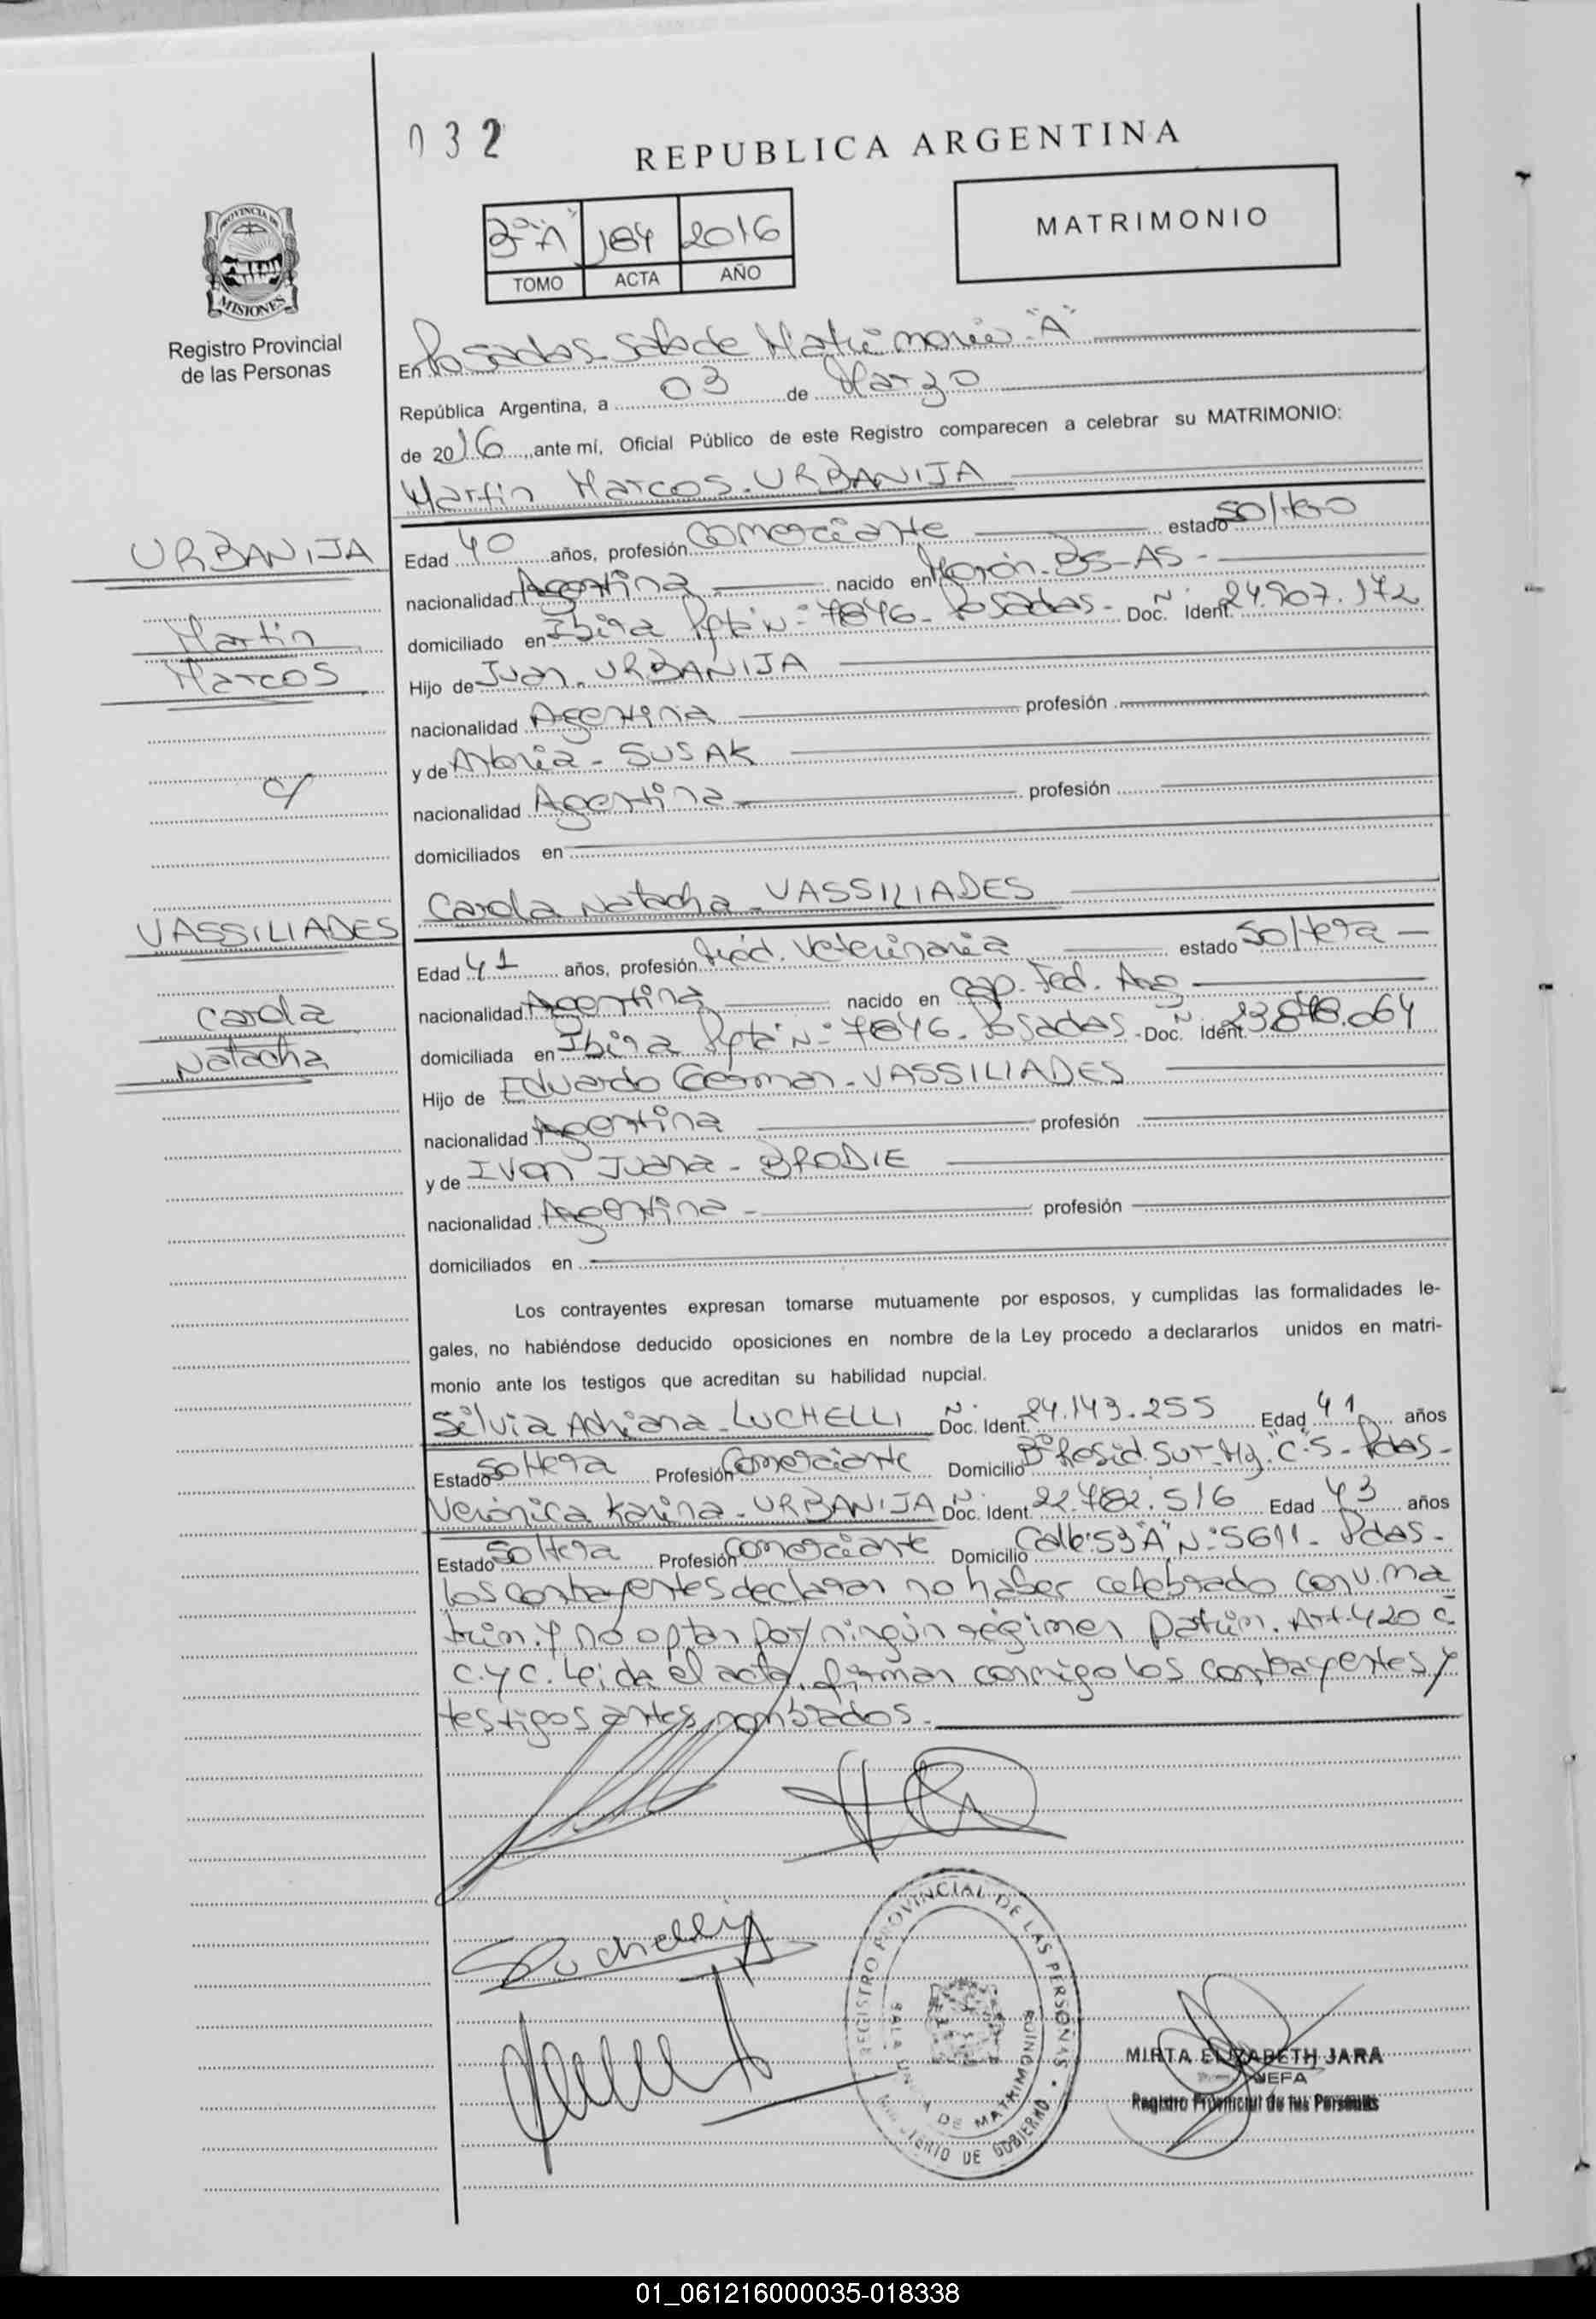 032
REPUBLICA ARGENTINA
PROVINCIA DE
MISIONES
Registro Provincial
de las Personas
2016
TOMO ACTA AÑO
MATRIMONIO
En Posadas - Sala de Matrimonio "A"
República Argentina, a 03 de Marzo
de 2016, ante mí, Oficial Público de este Registro comparecen a celebrar su MATRIMONIO:
Martin Marcos - URBANIJA
URBANIJA
Martin
Marcos
c/
VASSILIADES
Carola
Natacha
Edad 40 años, profesión Comerciante estado Soltero
nacionalidad Argentina nacido en Morón - BS - AS -
domiciliado en Ibira Pytá Nº 7846 - Posadas - Doc. Ident. 24.907.172
Hijo de Juan - URBANIJA
nacionalidad Argentina profesión
y de - SUSAK
nacionalidad Argentina profesión
domiciliados en
Carola Natacha - VASSILIADES
Edad 41 años, profesión Méd. Veterinaria estado Soltera -
nacionalidad Argentina nacido en Cap. Fed. Arg
domiciliada en Ibira Pytá Nº 7846 - Posadas - Doc. Ident.
Hijo de Eduardo German - VASSILIADES
nacionalidad Argentina profesión
y de Ivon Juana - BRODIE
nacionalidad Argentina - profesión
domiciliados en
Los contrayentes expresan tomarse mutuamente por esposos, y cumplidas las formalidades le-
gales, no habiéndose deducido oposiciones en nombre de la Ley procedo a declararlos unidos en matri-
monio ante los testigos que acreditan su habilidad nupcial.
Silvia Adriana - LUCHELLI Doc. Ident. 24.143.255 Edad 41 años
Estado Soltera Profesión Comerciante Domicilio Bº Resid. Sur - Mz. "C" - Pdas -
Verónica Karina - URBANIJA Doc. Ident. 22.782.516 Edad 43 años
Estado Soltera Profesión Comerciante Domicilio Calle: 53 "A" Nº 5611 - Pdas -
Los contrayentes declaran no haber celebrado conv. ma
trim. y no optan por ningún régimen patrim. Art. 420
C. y C. Leida el acta, firman conmigo los contrayentes y
testigos antes nombrados. -
SLuchelli
REGISTRO PROVINCIAL DE LAS PERSONAS
SALA UNICA DE MATRIMONIOS
MINISTERIO DE GOBIERNO
MIRTA ELIZABETH JARA
JEFA
Registro Provincial de las Personas
01_061216000035-018338